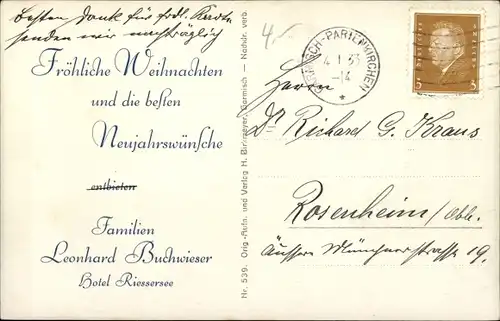 besten Dank für frdl. Karte
senden wir nachträglich
Fröhliche Weihnachten
und die besten
Neujahrswünsche
entbieten
Familien
Leonhard Buchwieser
Hotel Riessersee
Nr. 539. Orig.-Aufn. und Verlag H. Birkmeyer, Garmisch — Nachdr. verb.
4,-
GARMISCH-PARTENKIRCHEN
4. 1. 33
-14
3 3
Herrn
Dr Richard G. Kraus
Rosenheim/Obb.
äussere Münchnerstrasse 19.